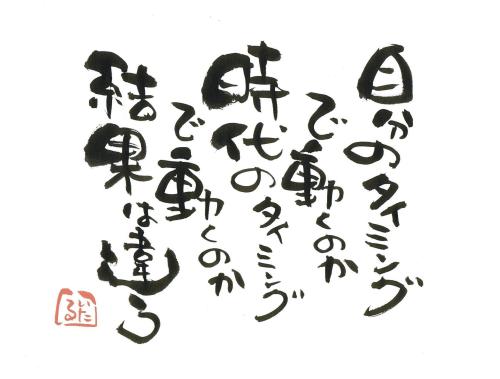 自分のタイミング
で動くのか
時代のタイミング
で動くのか
結果は違う
いたる